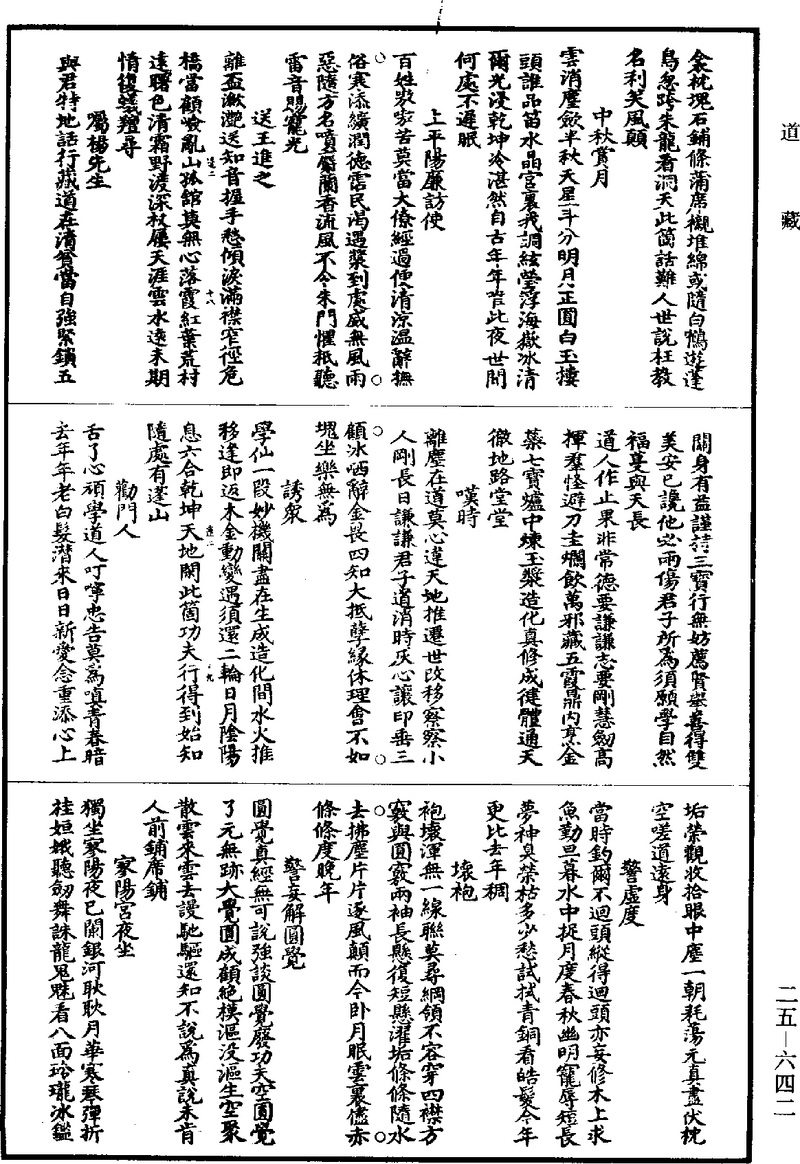 道藏
衾枕塊石鋪條蒲席襯堆綿或隨白鶴遊蓬
島忽跨朱龍看洞天此箇話難人世說枉教
名利笑風顛
中秋賞月
雲消塵斂半秋天星斗分明月正圓白玉樓
頭誰品笛水晶宮裏我調絃瑩浮海嶽冰清
爾光浸乾坤冷湛然自古年年皆此夜世間
何處不遲眠
上平陽廉訪使
百姓嗷嗷苦莫當大僚經過便清涼溫辭撫
俗寒添纊潤德霑民渴遇漿到處威無風雨
惡隨方名噴麝蘭香流風不令朱門懼祇聽
雷音賜寵光
送王進之
離盃瀲灧送知音握手愁傾淚滿襟窄徑危
橋當顧嶮亂山孤館莫無心落霞紅葉荒村
遠曙色清霜野渡深杖屨天涯雲水遠未期
情後幾
尋
囑楊先生
與君特地話行藏道在清貧當自強緊鎖五
關身有益謹持三寶行無妨薦賢舉善得雙
美安已讒他必兩傷君子所為須願學自然
福蔓與天長
道人作止果非常德要謙謙志要剛慧劒高
揮羣怪避刀圭爛飲萬邪藏五霞鼎內烹金
蘂七寶爐中煉玉漿造化真修成健體通天
徹地路堂堂
嘆時
離塵在道莫心違天地推遷世改移察察小
人剛長日謙謙君子道消時灰心讓印垂三
顧冰哂辭金畏四知大抵孽緣休理會不如
塊坐樂無為
誘眾
學仙一段妙機關盡在生成造化間水火推
移逢即返木金動變遇須還二輪日月陰陽
息六合乾坤天地閑此箇功夫行得到始知
隨處有蓬山
勸門人
舌了心頑學道人叮嚀忠告莫為嗔青春暗
去年年老白髮潛來日日新愛念重添心上
垢榮觀收拾眼中塵一朝耗蕩元真盡伏枕
空嗟道遠身
警虛度
當時釣爾不迴頭縱得迴頭亦妄修木上求
魚勤旦暮水中捉月度春秋幽明寵辱短長
夢神臭榮枯多少愁試拭青銅看皓髮今年
更比去年稠
壞袍
袍壞渾無一線聯莫尋綱領不容穿四襟方
竅與圓竅兩袖長懸復短懸濯垢條條隨水
去拂塵片片逐風顛而今臥月眠雲裏儘赤
條條度晚年
警妄解圓覺
圓覺真經無可說強談圓覺廢功夫空圓覺
了元無跡大覺圓成顧絕模漚沒漚生空聚
散雲來雲去謾馳驅還知不說為真說未肯
人前鋪席鋪
寥陽宮夜坐
獨坐寥陽夜已闌銀河耿耿月華寒琴彈折
桂姮娥聽劒舞誅龍鬼魅看八面玲瓏冰鑑
二五—六四二